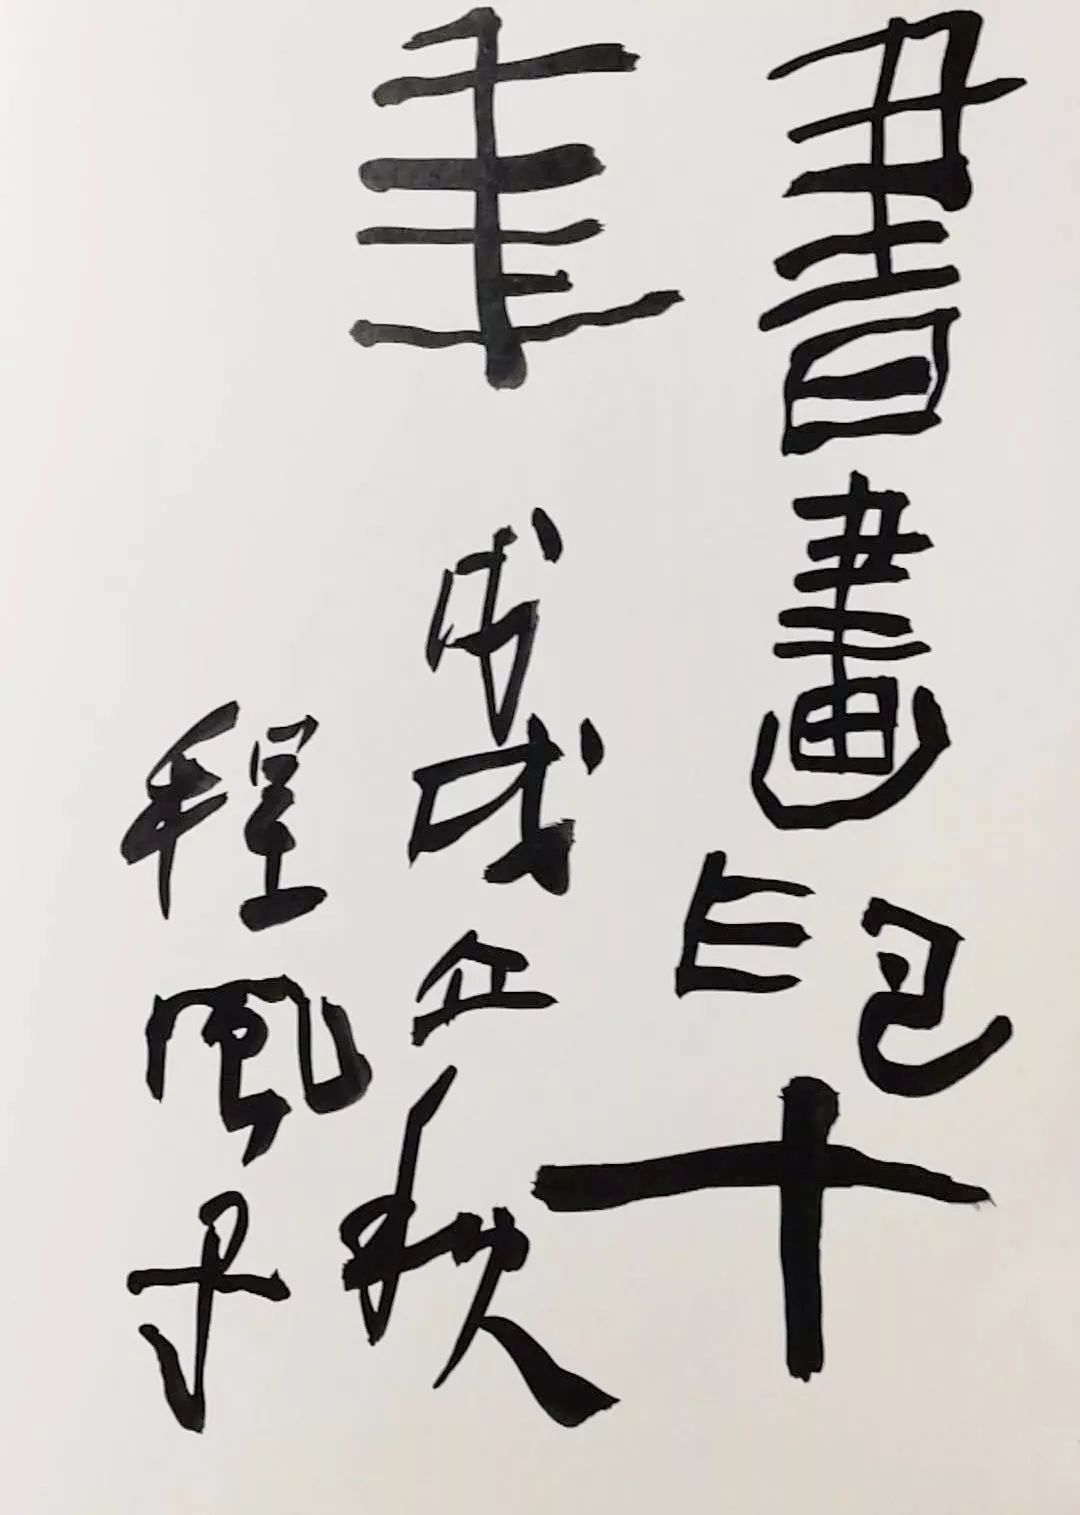 書畫印十
年 戊戌立秋
程風子